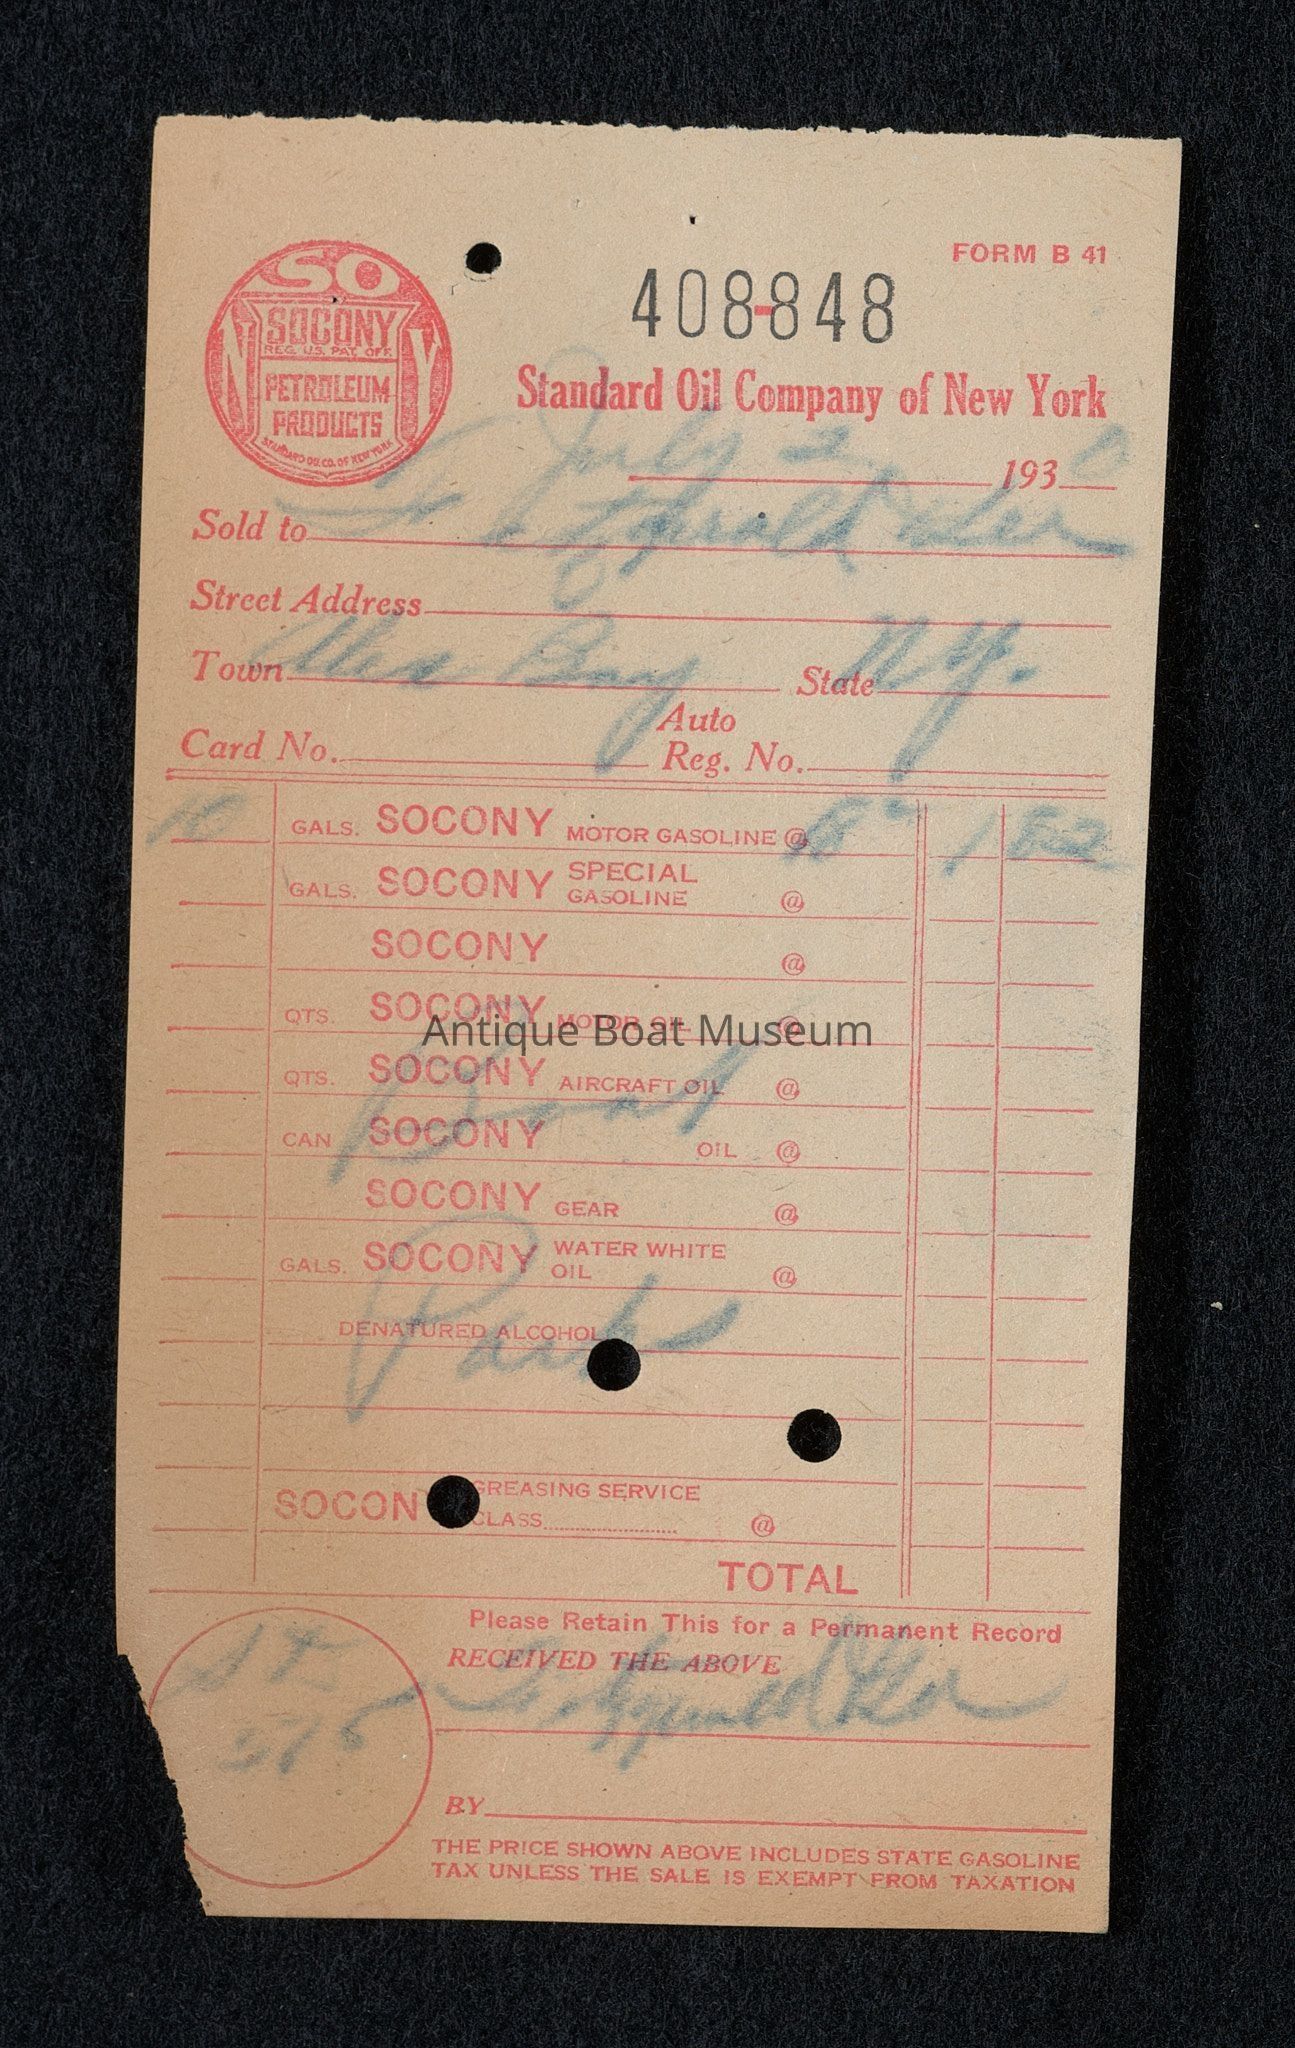 FORM B 41
408-848
SO
N Y
SOCONY
REG. U.S. PAT. OFF.
PETROLEUM
PRODUCTS
STANDARD OIL CO. OF NEW YORK
Standard Oil Company of New York
July 2 1930
Sold to
Street Address
Town Alex Bay State N.Y.
Card No. Auto Reg. No.
GALS. SOCONY MOTOR GASOLINE @ 1 82
GALS. SOCONY SPECIAL GASOLINE @
SOCONY @
QTS. SOCONY MOTOR OIL @
Antique Boat Museum
QTS. SOCONY AIRCRAFT OIL @
Boat
CAN SOCONY OIL @
SOCONY GEAR @
GALS. SOCONY WATER WHITE OIL @
DENATURED ALCOHOL
Parks
SOCON GREASING SERVICE
CLASS @
TOTAL
Please Retain This for a Permanent Record
RECEIVED THE ABOVE
BY
THE PRICE SHOWN ABOVE INCLUDES STATE GASOLINE
TAX UNLESS THE SALE IS EXEMPT FROM TAXATION